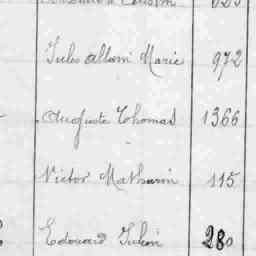 Jules Marie 972
Auguste Thomas 1366
Victor Mathurin 115
Edouard 280